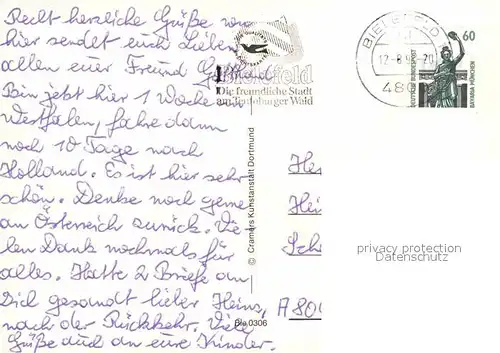 Recht herzliche Grüße von
hier sendet euch Lieben
allen euer Freund
Bin jetzt hier 1 Woche
Westfalen, fahre dann
noch 10 Tage nach
Holland. Es ist hier sehr
schön. Denke noch gerne
an Österreich zurück. Vie
len Dank nochmals für
alles. Hatte 2 Briefe an
Dich gesandt lieber Heins,
nach der Rückkehr. Viele
Grüße auch an eure Kinder.
Bielefeld
Die freundliche Stadt
am Teutoburger Wald
BIELEFELD
12-8
-20
480
60
DEUTSCHE BUNDESPOST
BAVARIA MÜNCHEN
© Cramers Kunstanstalt Dortmund
Bie 0306
He
Hei
Sch
A 80
privacy protection
Datenschutz